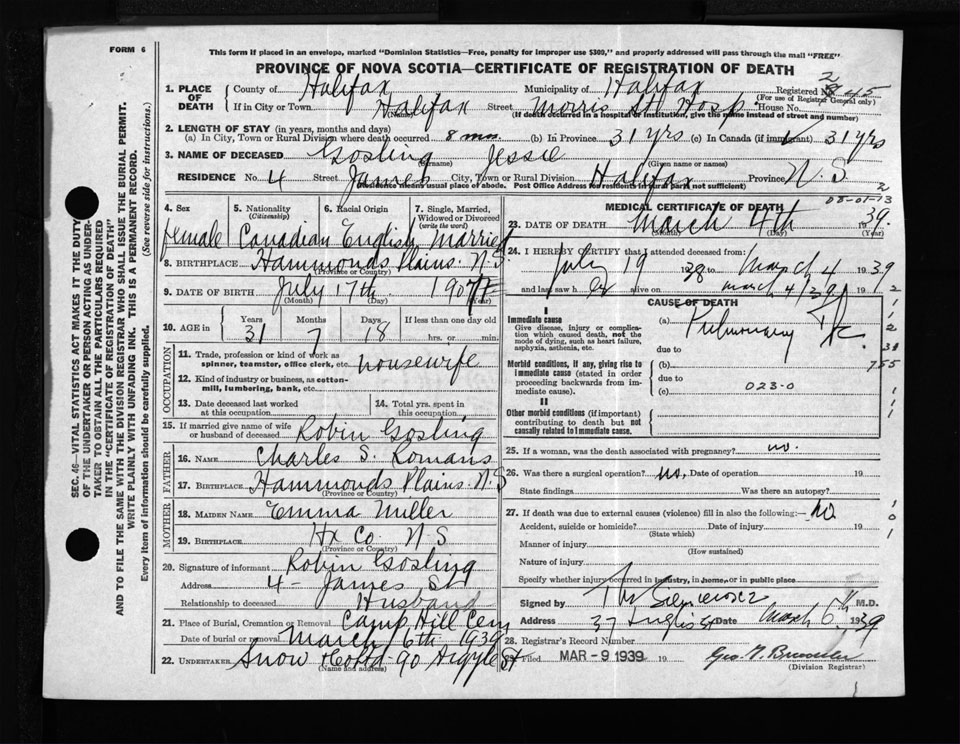 FORM 6
This form if placed in an envelope, marked "Dominion Statistics—Free, penalty for improper use $300," and properly addressed will pass through the mail "FREE".
PROVINCE OF NOVA SCOTIA—CERTIFICATE OF REGISTRATION OF DEATH
1. PLACE OF DEATH { County of Halifax Municipality of Halifax Registered No.
(For use of Registrar General only)
If in City or Town Halifax Street Morris St. Hosp. House No.
(Name) (If death occurred in a hospital or institution, give the name instead of street and number)
2. LENGTH OF STAY (in years, months and days)
(a) In City, Town or Rural Division where death occurred 8 mos (b) In Province 31 yrs (c) In Canada (if immigrant) 31 yrs
3. NAME OF DECEASED Gosling Jessie
(Surname) (Given name or names)
RESIDENCE No. 4 Street James City, Town or Rural Division Halifax Province N.S
(Residence means usual place of abode. Post Office Address for residents in rural parts not sufficient)
4. Sex
female
5. Nationality
(Citizenship)
Canadian
6. Racial Origin
English
7. Single, Married, Widowed or Divorced
(write the word)
Married
8. BIRTHPLACE Hammonds Plains. N.S
(Province or Country)
9. DATE OF BIRTH July 17th 1907
(Month) (Day) (Year)
10. AGE in { Years Months Days If less than one day old
31 7 18 hrs. or min.
OCCUPATION
11. Trade, profession or kind of work as spinner, teamster, office clerk, etc. housewife
12. Kind of industry or business, as cotton-mill, lumbering, bank, etc.
13. Date deceased last worked at this occupation
14. Total yrs. spent in this occupation
15. If married give name of wife or husband of deceased Robin Gosling
FATHER
16. Name Charles S. Romans
17. Birthplace Hammonds Plains. N.S
(Province or Country)
MOTHER
18. Maiden Name Emma Miller
19. Birthplace Hx Co. N.S
(Province or Country)
20. Signature of informant Robin Gosling
Address 4 - James St
Relationship to deceased Husband
21. Place of Burial, Cremation or Removal Camp Hill Cem
Date of burial or removal March 6th 1939
22. Undertaker Snow & Co Ltd 90 Argyle St
(Name and address)
03-01-13
MEDICAL CERTIFICATE OF DEATH
23. DATE OF DEATH March 4th 1939
(Month) (Day) (Year)
24. I HEREBY CERTIFY that I attended deceased from:
July 19 1938 to March 4 1939
and last saw her alive on March 4/39 19
CAUSE OF DEATH
Immediate cause
Give disease, injury or complication which caused death, not the mode of dying, such as heart failure, asphyxia, asthenia, etc.
(a) Pulmonary Tbc.
due to
Morbid conditions, if any, giving rise to immediate cause (stated in order proceeding backwards from immediate cause).
(b)
due to
(c) 023-0
II
Other morbid conditions (if important) contributing to death but not causally related to immediate cause.
25. If a woman, was the death associated with pregnancy? no.
26. Was there a surgical operation? no. Date of operation 19
State findings Was there an autopsy?
27. If death was due to external causes (violence) fill in also the following:— no
Accident, suicide or homicide? Date of injury 19
(State which)
Manner of injury
(How sustained)
Nature of injury
Specify whether injury occurred in industry, in home, or in public place
Signed by M.D.
Address 37 Inglis St Date March 6th 1939
28. Registrar's Record Number
29. Filed MAR - 9 1939 19
(Division Registrar)
SEC. 46—VITAL STATISTICS ACT MAKES IT THE DUTY OF THE UNDERTAKER OR PERSON ACTING AS UNDERTAKER TO OBTAIN ALL THE PARTICULARS REQUIRED IN THE "CERTIFICATE OF REGISTRATION OF DEATH"
AND TO FILE THE SAME WITH THE DIVISION REGISTRAR WHO SHALL ISSUE THE BURIAL PERMIT.
WRITE PLAINLY WITH UNFADING INK. THIS IS A PERMANENT RECORD.
Every item of information should be carefully supplied. (See reverse side for instructions.)